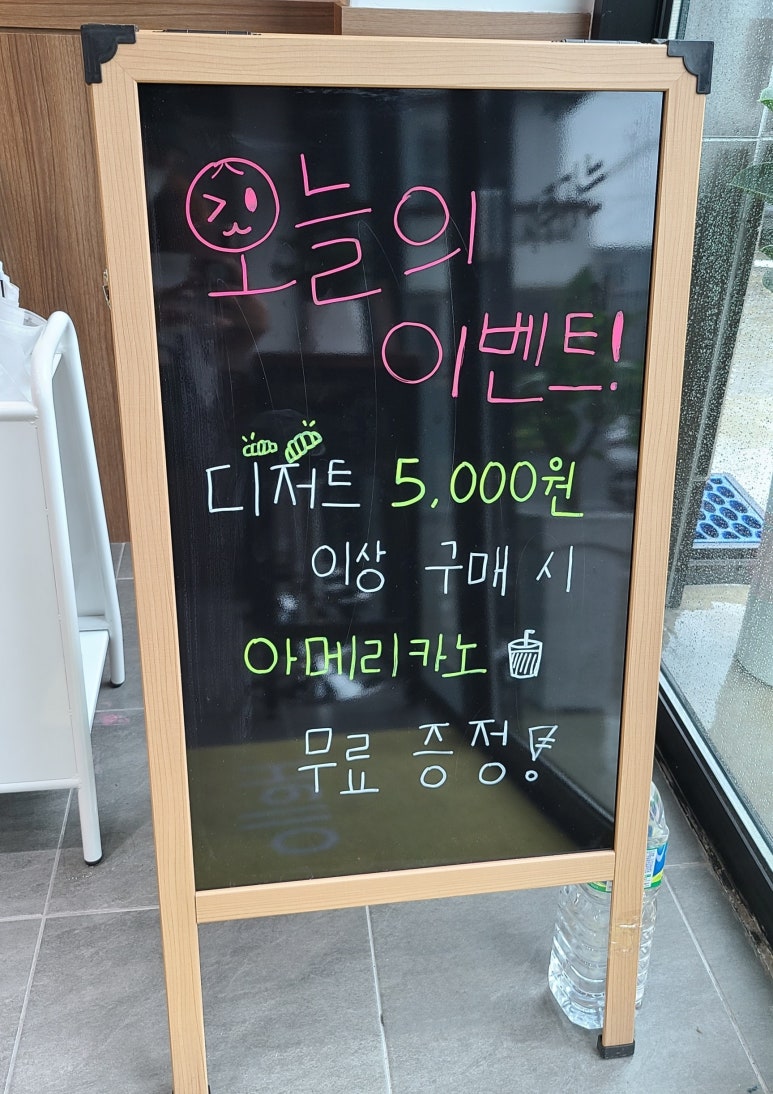 오늘의
이벤트!
디저트 5,000원
이상 구매 시
아메리카노
무료 증정!